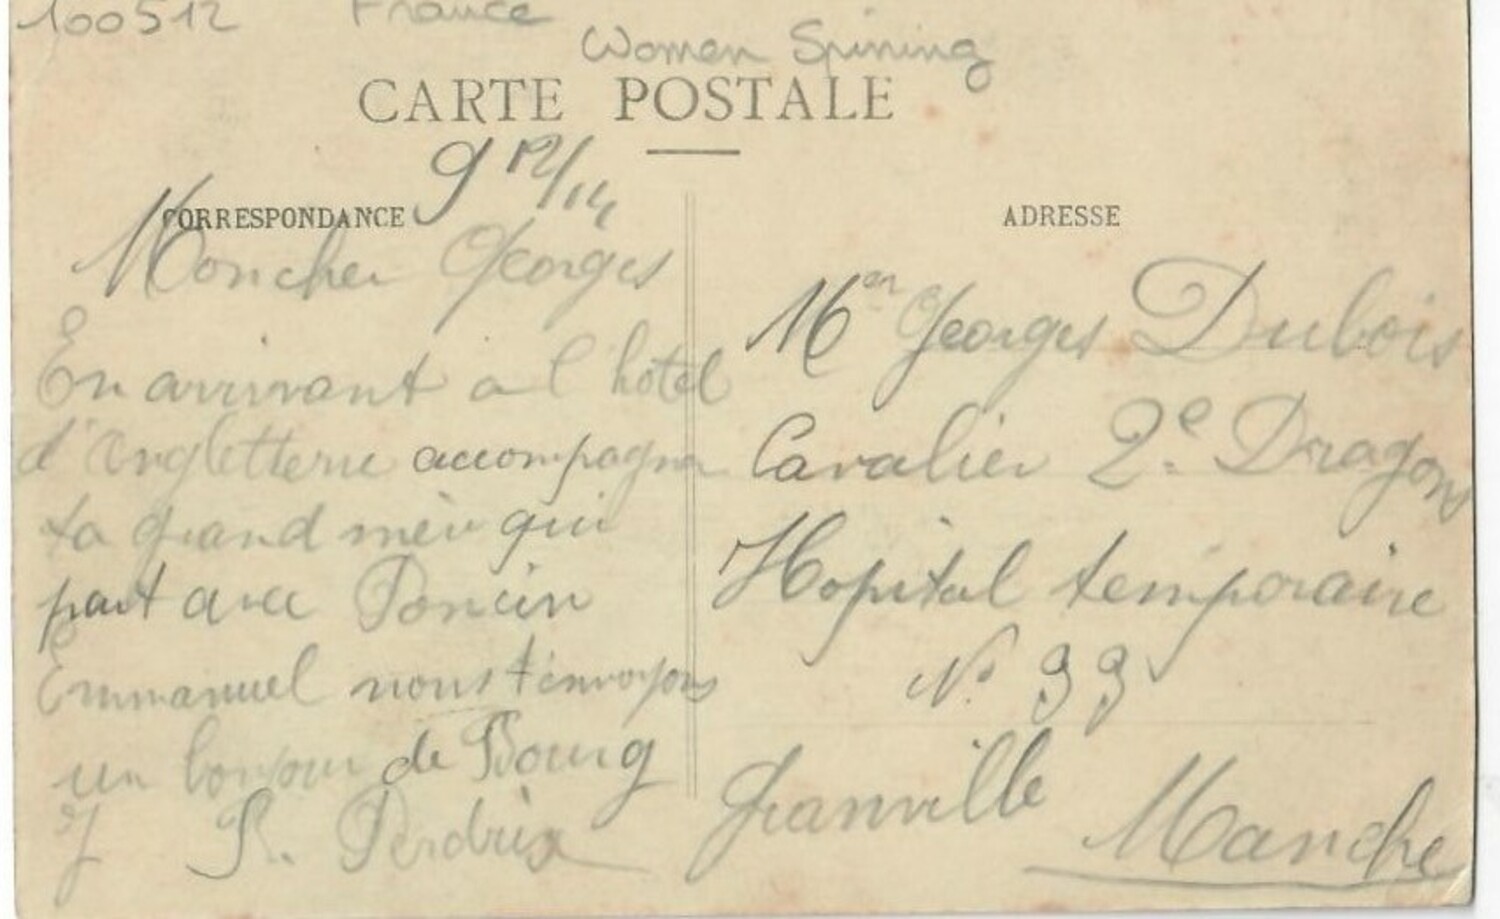 100512 France
Women Spining
CARTE POSTALE
9 12/14
CORRESPONDANCE
Mon cher Georges
En arrivant a l'hotel
d'Angletterre accompagner
ta grand mère qui
part avec Poncin
Emmanuel nous t'envoyons
un bonjour de Bourg
P. Perdrix
ADRESSE
Georges Dubois
Cavalier 2e Dragons
Hopital temporaire
No 99
Granville Manche